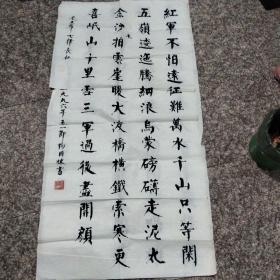 紅軍不怕遠征難萬水千山只等閑
五嶺逶迤騰細浪烏蒙磅礴走泥丸
金沙拍雲崖暖大渡橋橫鐵索寒更
喜岷山千里雪三軍過後盡開顏
七律長征
一九九六年五一節 書